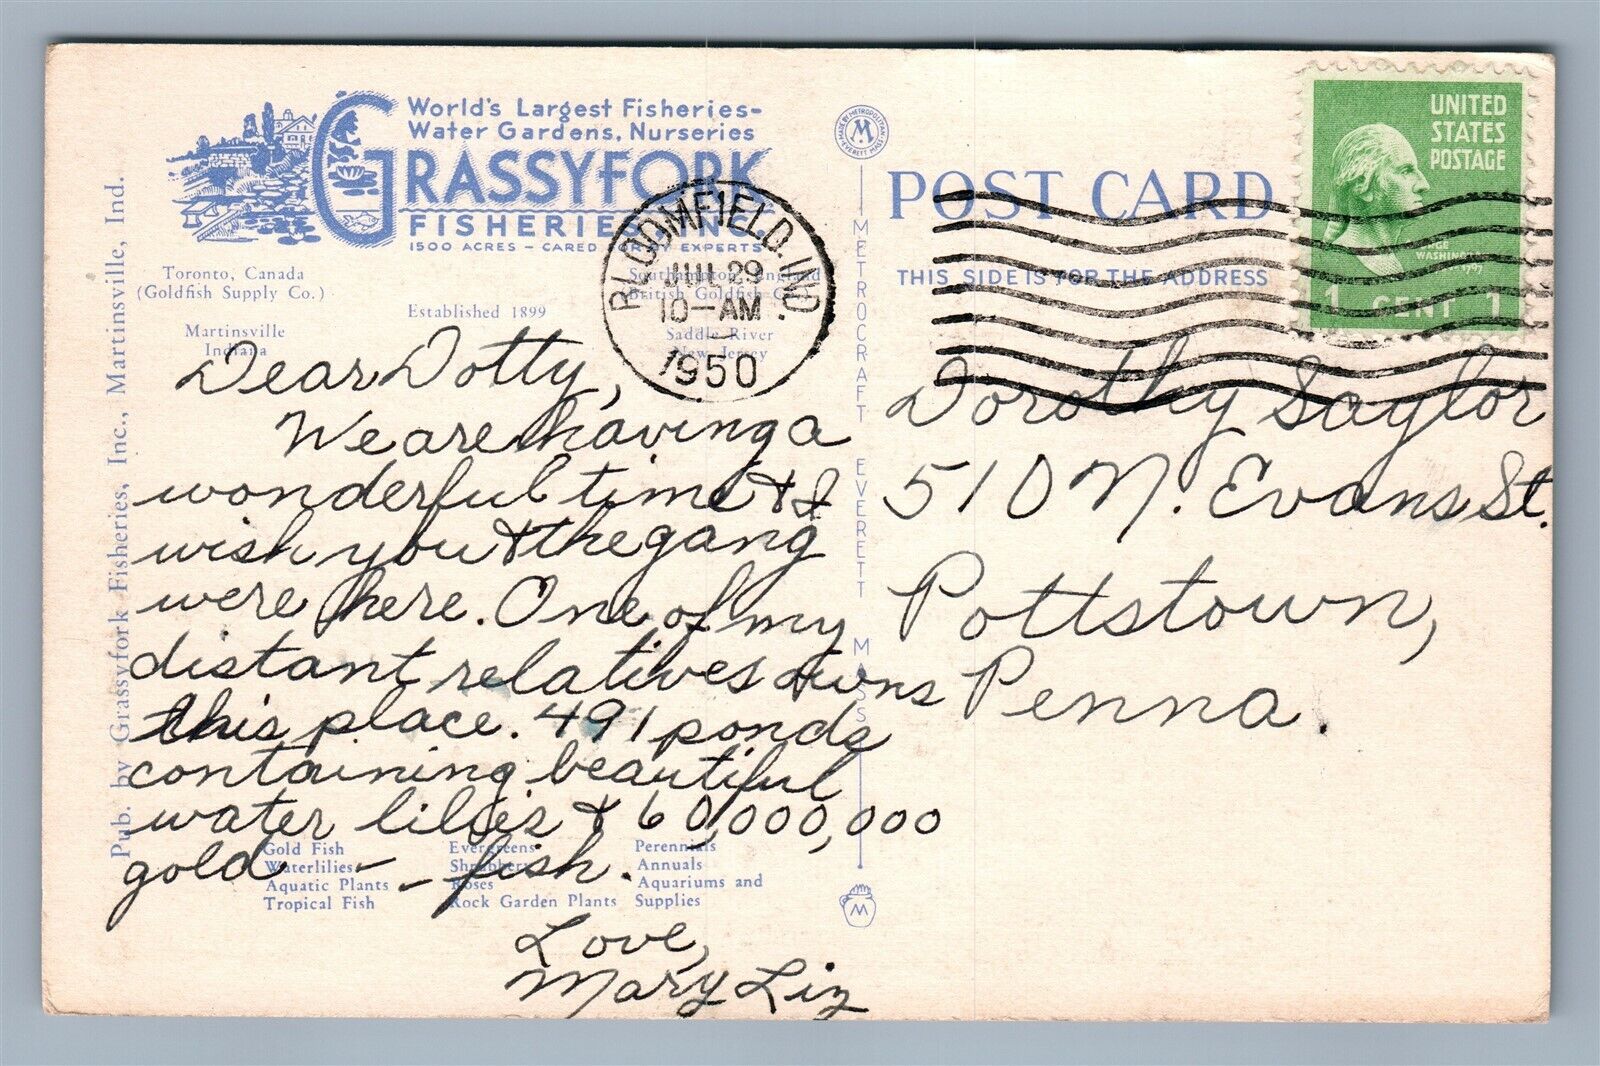 World's Largest Fisheries-
Water Gardens, Nurseries
GRASSYFORK
FISHERIES, INC.
1500 ACRES - CARED FOR BY EXPERTS
Toronto, Canada
(Goldfish Supply Co.)
Southampton, England
British Goldfish
Established 1899
Martinsville
Indiana
Saddle River
New Jersey
BLOOMFIELD. IND.
JUL 29
10-AM
1950
Dear Dotty,
We are having a
wonderful time & I
wish you & the gang
were here. One of my
distant relatives owns
this place. 491 ponds
containing beautiful
water lilies & 60,000,000
gold -- fish.
Love,
Mary Liz
Gold Fish
Waterlilies
Aquatic Plants
Tropical Fish
Evergreens
Shrubbery
Roses
Rock Garden Plants
Perennials
Annuals
Aquariums and
Supplies
Pub. by Grassyfork Fisheries, Inc., Martinsville, Ind.
MADE BY METROPOLITAN
EVERETT MASS
M
METROCRAFT EVERETT MASS
M
POST CARD
THIS SIDE IS FOR THE ADDRESS
UNITED
STATES
POSTAGE
WASHINGTON
1 CENT 1
Dorothy Saylor
510 N. Evans St.
Pottstown,
Penna.